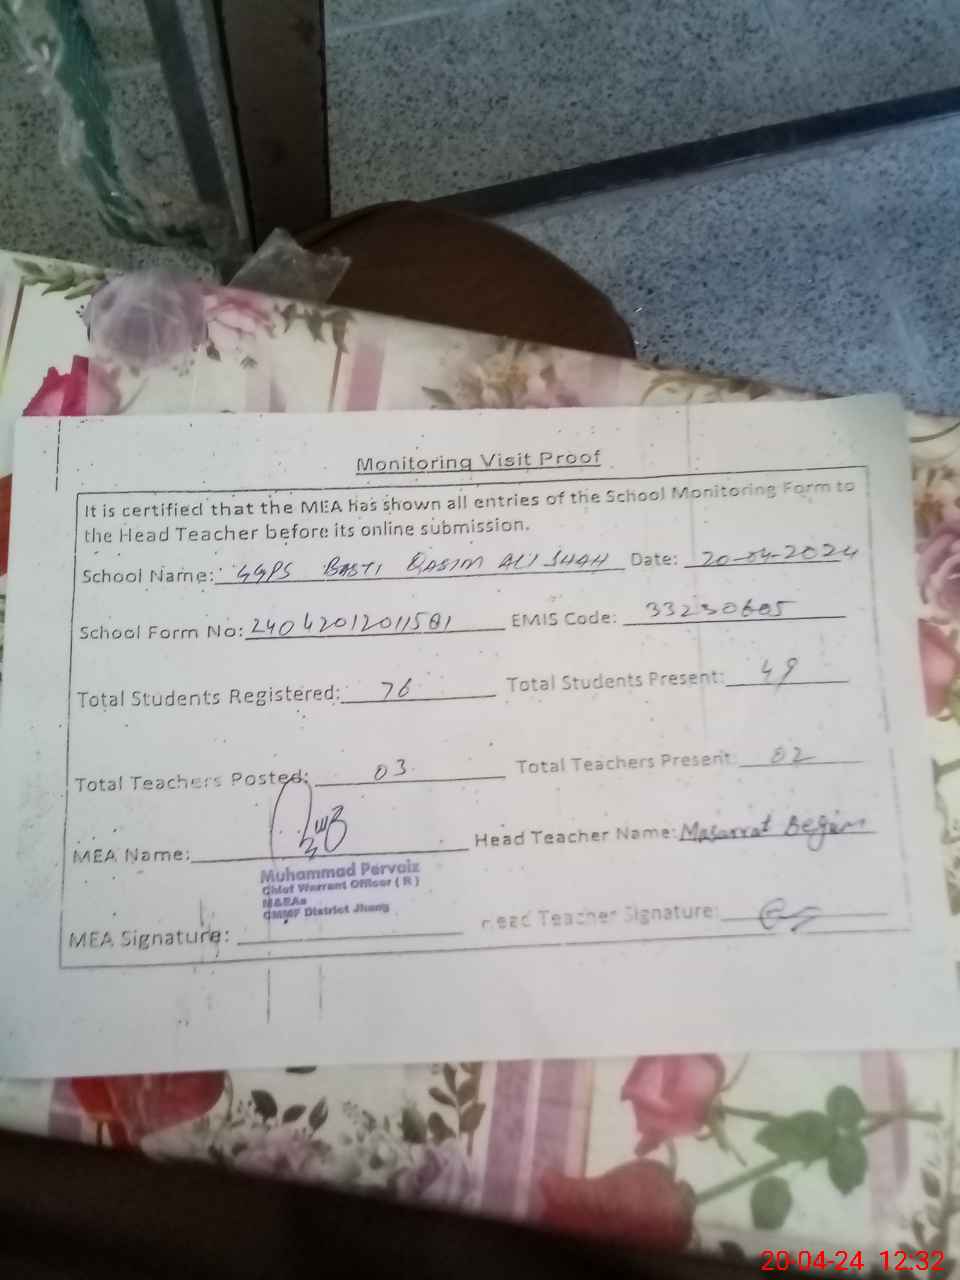 Monitoring Visit Proof
It is certified that the MEA has shown all entries of the School Monitoring Form to
the Head Teacher before its online submission.
School Name: GGPS BASTI QASIM ALI SHAH Date: 20-04-2024
School Form No: 24042012011581 EMIS Code: 33230605
Total Students Registered: 76 Total Students Present: 49
Total Teachers Posted: 03 Total Teachers Present: 02
MEA Name: Head Teacher Name: Masarrat Begum
Muhammad Pervaiz
Chief Warrant Officer ( R )
M&EAs
CMMF District Jhang
MEA Signature: Head Teacher Signature:
20-04-24 12:32